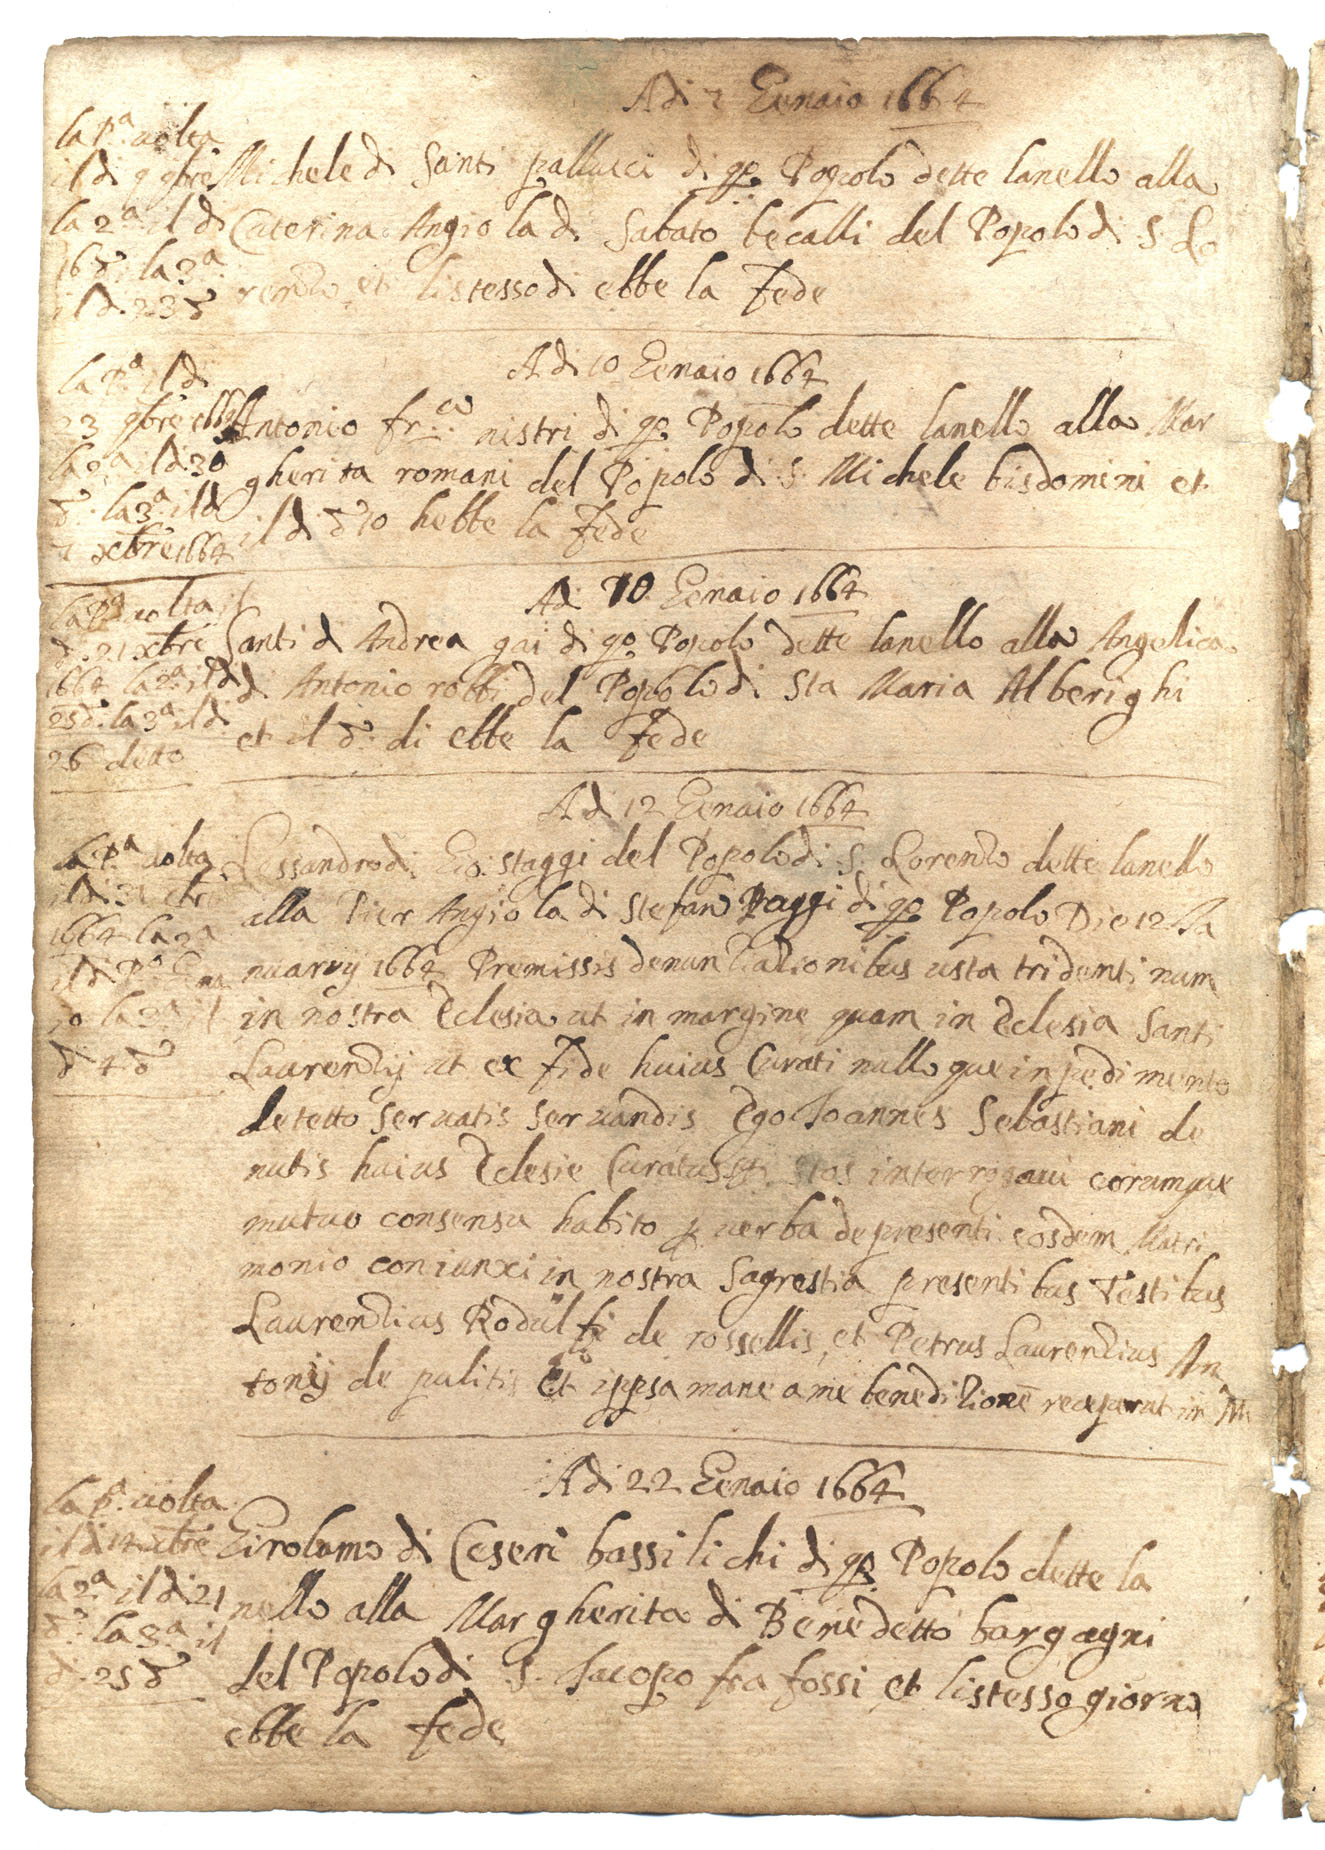 Adi 7 Gennaio 1664
la P.ª uolta
il di 9 9bre
la 2.ª il di
16 d.º la 3.ª
il di 23 d.º
Michele di Santi pallucci di q.º Popolo dette lanello alla
Caterina Angiola di Sabato becalli del Popolo di S. Lo
renzo et listesso di ebbe la Fede
Adi 10 Genaio 1664
la P.ª il di
23 9bre
la 2.ª il di 30
d.º la 3.ª il di
7 xbre 1664
Antonio fr.co nistri di q.º Popolo dette lanello alla Mar
gherita romani del Popolo di S. Michele bisdomini et
il di d.º 10 hebbe la Fede
Adi 10 Genaio 1664
la P.ª uolta il
di 21 xbre
1664 la 2.ª il di
25 d.º la 3.ª il di
26 detto
Santi di Andrea gai di q.º Popolo dette lanello alla Angelica
di Antonio robbi del Popolo di Sta Maria Alberighi
et il d.º di ebbe la Fede
Adi 12 Genaio 1664
la P.ª uolta
il di 31 xbre
1664 la 2.ª
il di P.º Gena
io la 3.ª il
di 4 d.º
Lessandro di Gio. staggi del Popolo di S. Lorenzo dette lanello
alla Pier Angiola di Stefano Paggi di q.º Popolo Die 12 Ja
nuarij 1664 Premissis denuntiationibus usta tridentinum
in nostra Eclesia ut in margine quam in Eclesia Santi
Laurentij ut ex Fide huius Curati nulloque inpedimento
detetto servatis servandis Ego Joannes Sebastiani de
nutis huius Eclesie Curatus stos interrogavi eorumque
mutuo consensu habito p verba de presenti eosdem Matri
monio coniunxi in nostra Sagrestia presentibus Testibus
Laurentius Rodulfi de rossellis, et Petrus Laurentius An
tonij de pulitis Et ippsa mane a me beneditione receperut in M
Adi 22 Genaio 1664
la P.ª uolta
il di 14 xbre
la 2.ª il di 21
d.º la 3.ª il
di 25 d.º
Girolamo di Ceseri bassilichi di q.º Popolo dette la
nello alla Margherita di Benedetto bargagni
del Popolo di S. Jacopo fra fossi et listesso giorno
ebbe la fede